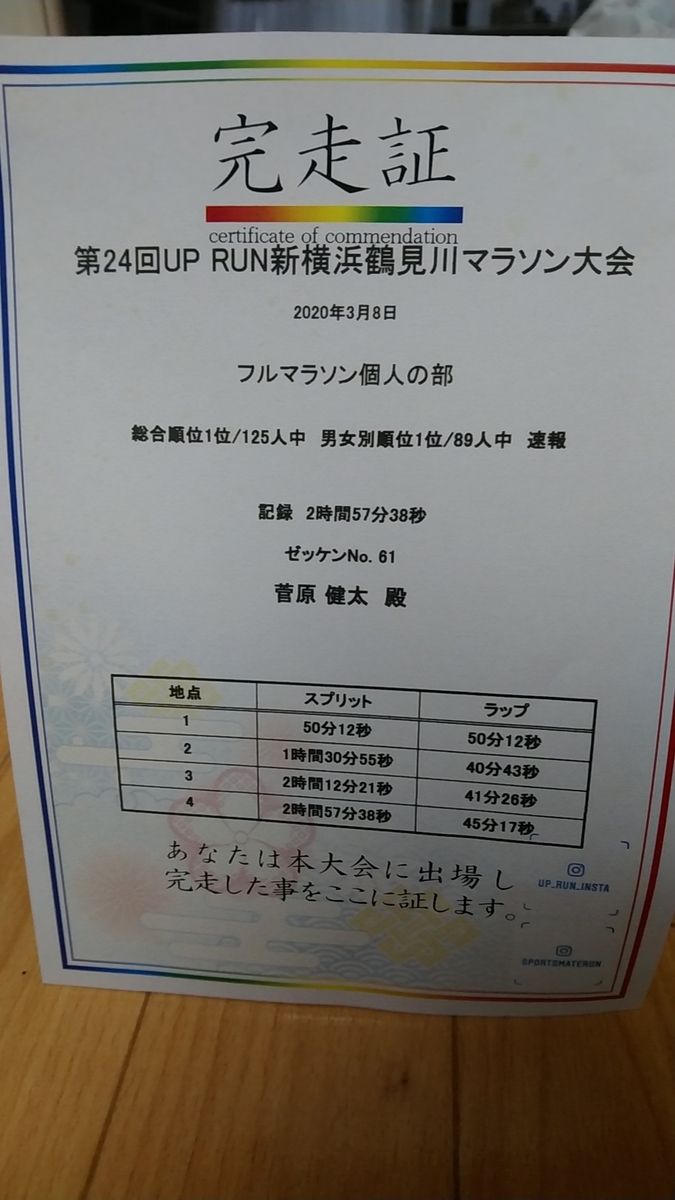 完走証
certificate of commendation
第24回UP RUN新横浜鶴見川マラソン大会
2020年3月8日
フルマラソン個人の部
総合順位1位/125人中 男女別順位1位/89人中 速報
記録 2時間57分38秒
ゼッケンNo. 61
菅原 健太 殿
地点 スプリット ラップ
1 50分12秒 50分12秒
2 1時間30分55秒 40分43秒
3 2時間12分21秒 41分26秒
4 2時間57分38秒 45分17秒
あなたは本大会に出場し
完走した事をここに証します。
UP_RUN_INSTA
SPORTSMATERUN